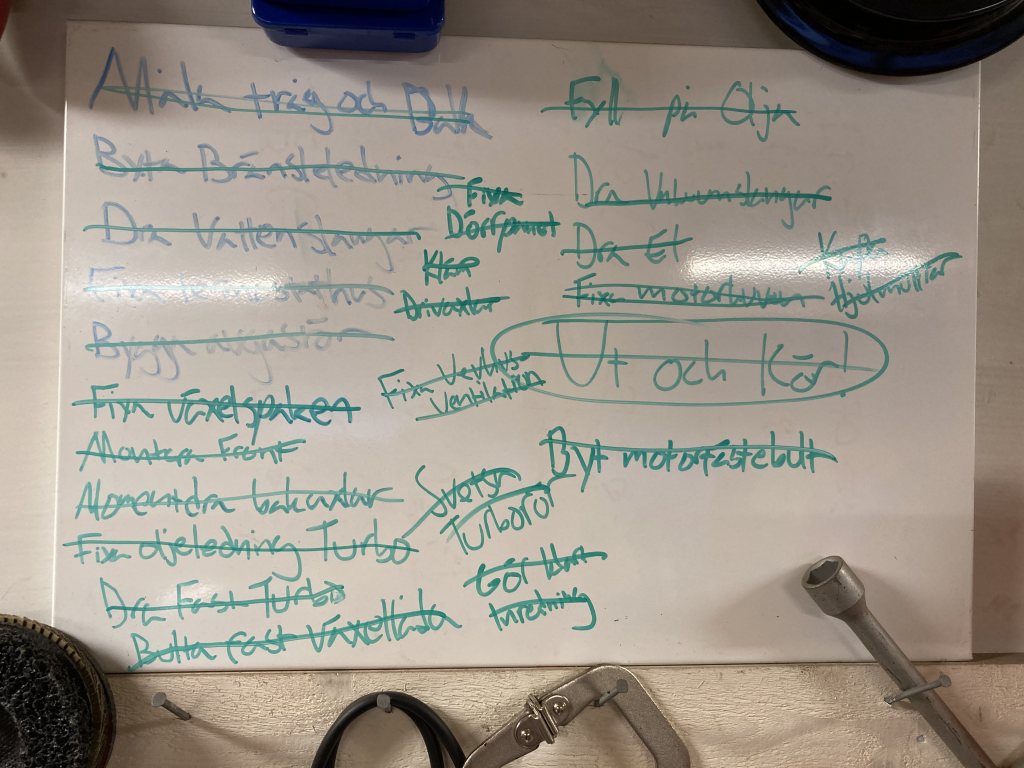 Måla tråg och Bak
Byta Bränsleledning
Dra Vattenslangar
Fixa
Bygga
Fixa växelspaken
Montera Front
Momentdra bakaxlar
Fixa oljeledning Turbo
Dra Fast Turbo
Bulta fast Växellåda
Fixa
Dörrpanel
Klar
Drivaxlar
Fixa Vevhus
Ventilation
Svetsa
Turborör
Gör klar
inredning
Fyll på Olja
Dra Vakumslangar
Dra El
Fixa motorhuven
Köpa
Hjulmuttrar
Ut och Kör!
Byt motorfästebult